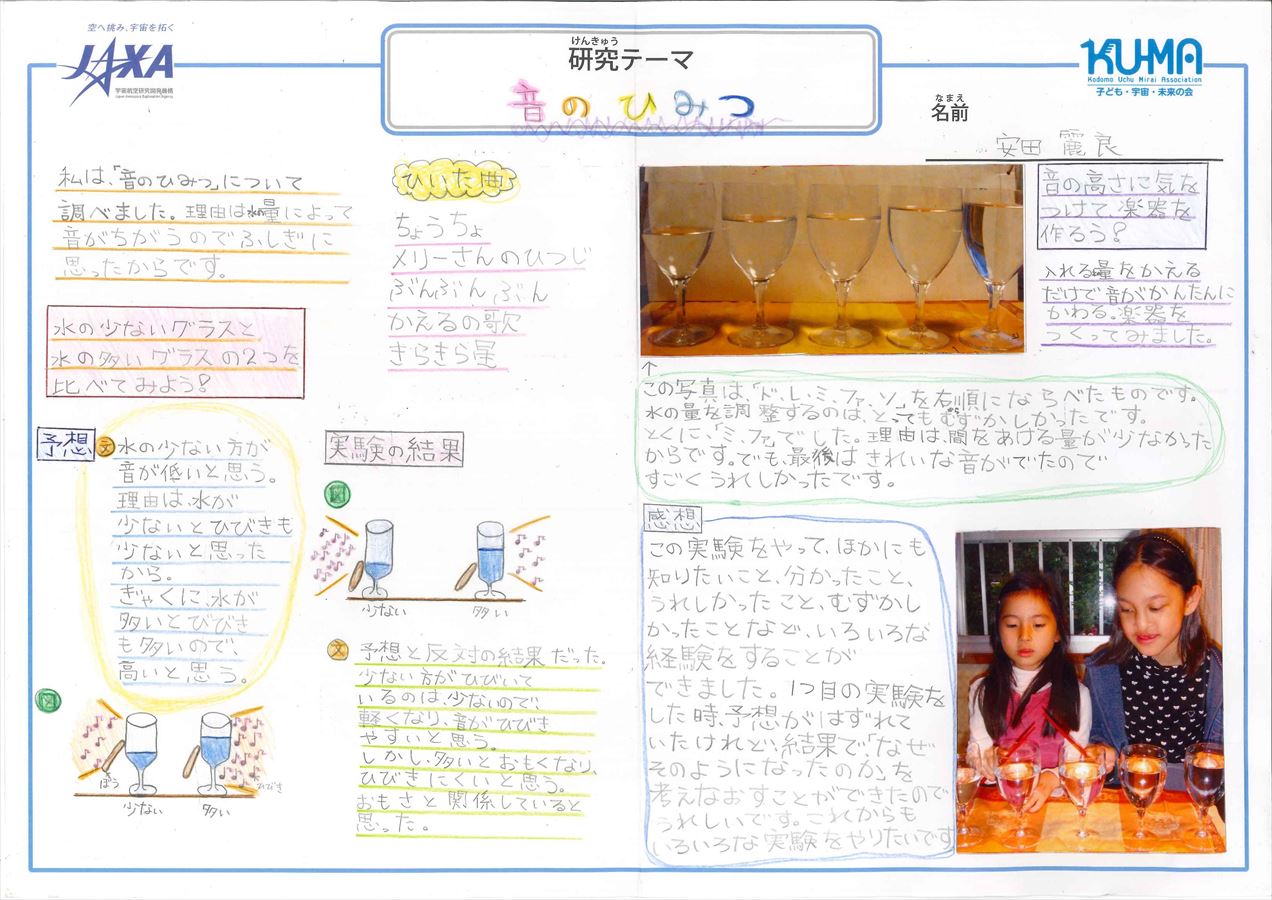 空へ挑み、宇宙を拓く
JAXA
宇宙航空研究開発機構
Japan Aerospace Exploration Agency
けんきゅう
研究テーマ
音のひみつ
KU-MA
Kodomo Uchu Mirai Association
子ども・宇宙・未来の会
なまえ
名前
安田 麗良
私は、「音のひみつ」について
調べました。理由は水の量によって
音がちがうのでふしぎに
思ったからです。
水の少ないグラスと
水の多いグラスの2つを
比べてみよう!
予想
文
水の少ない方が
音が低いと思う。
理由は、水が
少ないとひびきも
少ないと思った
から。
ぎゃくに、水が
多いとひびき
も多いので、
高いと思う。
図
ぼう
ひびき
少ない
多い
ひいた曲
ちょうちょ
メリーさんのひつじ
ぶんぶんぶん
かえるの歌
きらきら星
実験の結果
図
少ない
多い
文
予想と反対の結果だった。
少ない方がひびいて
いるのは、少ないので、
軽くなり、音がひびき
やすいと思う。
しかし、多いとおもくなり、
ひびきにくいと思う。
おもさと関係していると
思った。
音の高さに気を
つけて、楽器を
作ろう!
入れる量をかえる
だけで音がかんたんに
かわる。楽器を
つくってみました。
↑
この写真は、「ド、レ、ミ、ファ、ソ」を右から順にならべたものです。
水の量を調整するのは、とってもむずかしかったです。
とくに、「ミ、ファ」でした。理由は、間をあける量が少なかった
からです。でも、最後はきれいな音がでたので
すごくうれしかったです。
感想
この実験をやって、ほかにも
知りたいこと、分かったこと、
うれしかったこと、むずかし
かったことなど、いろいろな
経験をすることが
できました。1つ目の実験を
した時、予想がはずれて
いたけれど、結果で、「なぜ
そのようになったのか」を
考えなおすことができたので
うれしいです。これからも
いろいろな実験をやりたいです